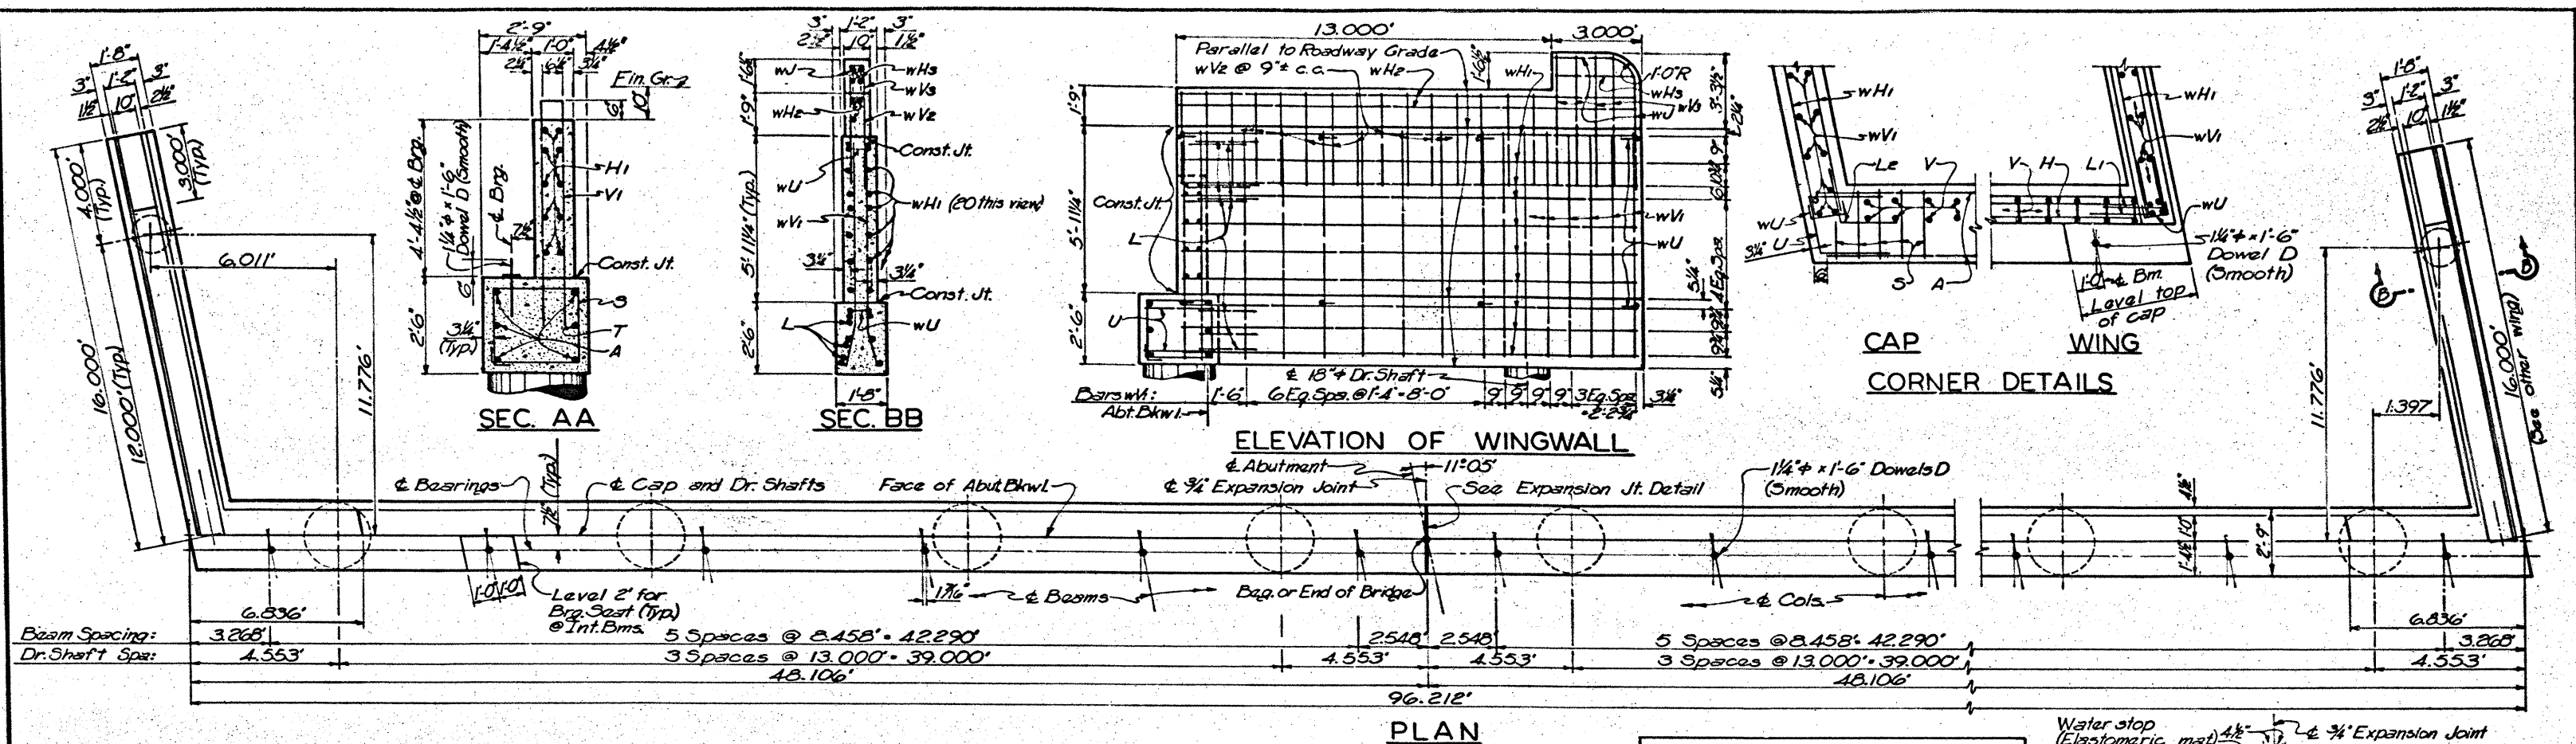 1'-8"
3" 1'-2" 3"
1½" 10" 2½"
4.000'
(Typ.)
3.000'
(Typ.)
16.000'
12.000' (Typ.)
6.011'
11.776'
2'-9"
1'-4½" 1'-0" 4½"
2¼" 6½" 3¼"
Fin. Gr.
10"
6"
4'-4½" @ ¢ Brg.
1¼" ϕ x 1'-6"
Dowel D (Smooth)
¢ Brg.
7½"
H1
V1
Const. Jt.
6"
2'-6"
3¼"
(Typ.)
S
T
A
SEC. AA
3" 1'-2" 3"
2½" 10" 1½"
1'-6½"
1'-9"
5'-11¼" (Typ.)
2'-6"
wU
wH3
wV3
wH2
wV2
Const. Jt.
wU
wH1 (20 this view)
wV1
3¼"
3¼"
Const. Jt.
L
wU
1'-8"
SEC. BB
13.000'
3.000'
Parallel to Roadway Grade
wV2 @ 9"± c.c.
wH2
1'-6½"
wH1
1'-0"R
wH3
wV3
wU
3'-3½"
2¼"
1'-9"
5'-11¼"
Const. Jt.
L
wV1
wU
9"
5¼"
4 Eq. Spa.
2'-6"
U
¢ 18" ϕ Dr. Shaft
5¼"
Bars wV1:
1'-6" 6 Eq. Sps. @ 1'-4" = 8'-0" 9" 9" 9" 9" 3 Eq. Sps. 3¼"
= 2'-2¾"
Abt. Bkwl.
ELEVATION OF WINGWALL
wH1
wV1
wH1
wV1
L2 V V H L1
wU
U
3¼"
wU
1¼" ϕ x 1'-6"
Dowel D
(Smooth)
S A
1'-0" ¢ Bm.
Level top
of cap
CAP WING
CORNER DETAILS
1'-8"
3" 1'-2" 3"
2½" 10" 1½"
B
B
11.776'
1.397'
16.000'
(See other wing)
¢ Bearings
7½" (Typ.)
¢ Cap and Dr. Shafts
Face of Abut. Bkwl.
¢ Abutment
11°05'
¢ ¾" Expansion Joint
See Expansion Jt. Detail
1¼" ϕ x 1'-6" Dowels D
(Smooth)
4½"
1'-0"
1'-4½"
2'-9"
1'-0" 1'-0"
Level 2' for
Brg. Seat (Typ.)
@ Int. Bms.
1⁷⁄₁₆"
¢ Beams
Beg. or End of Bridge
¢ Cols.
6.836'
6.836'
Beam Spacing: 3.268' 5 Spaces @ 8.458' = 42.290' 2.548' 2.548' 5 Spaces @ 8.458' = 42.290' 3.268'
Dr. Shaft Spa: 4.553' 3 Spaces @ 13.000' = 39.000' 4.553' 4.553' 3 Spaces @ 13.000' = 39.000' 4.553'
48.106' 48.106'
96.212'
PLAN
Water stop
(Elastomeric mat) 4½"
¢ ¾" Expansion Joint